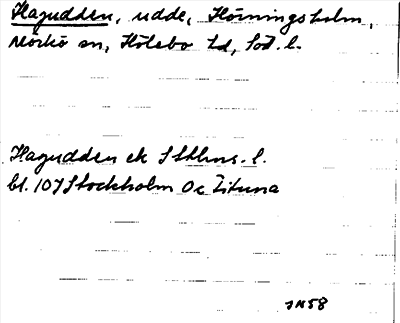 Hagudden, udde, Hörningsholm,
Mörkö sn, Hölebo hd, Söd. l.
Hagudden ek Sthlms. l.
bl. 107 Stockholm Oc Zituna
JK58